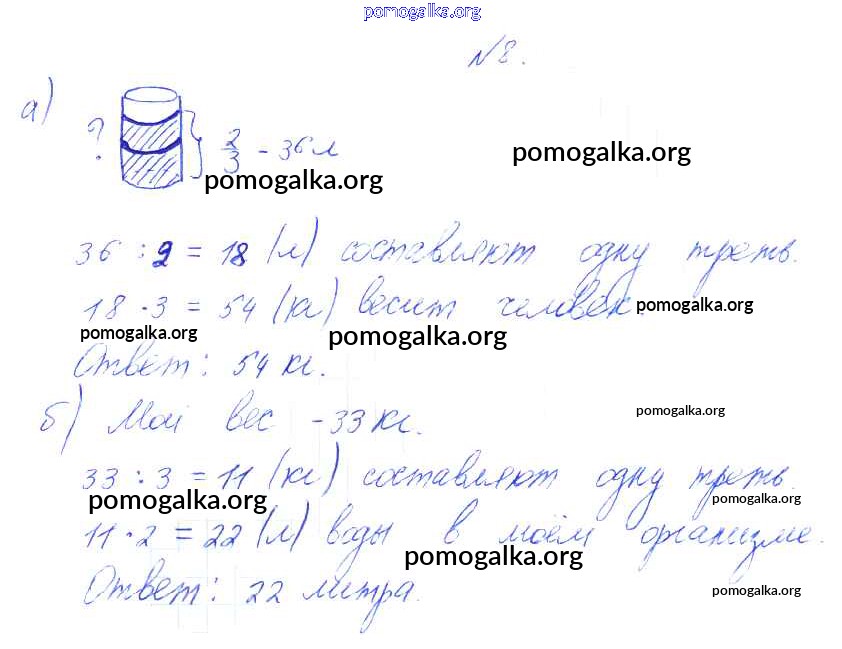 pomogalka.org
№8.
а)
? } 2/3 - 36 л
pomogalka.org
pomogalka.org
36 : 2 = 18 (л) составляют одну треть.
18 · 3 = 54 (кг) весит человек
pomogalka.org
pomogalka.org
pomogalka.org
Ответ: 54 кг.
б) Мой вес - 33 кг.
pomogalka.org
33 : 3 = 11 (кг) составляют одну треть.
pomogalka.org
pomogalka.org
11 · 2 = 22 (л) воды в моём организме.
pomogalka.org
Ответ: 22 литра.
pomogalka.org